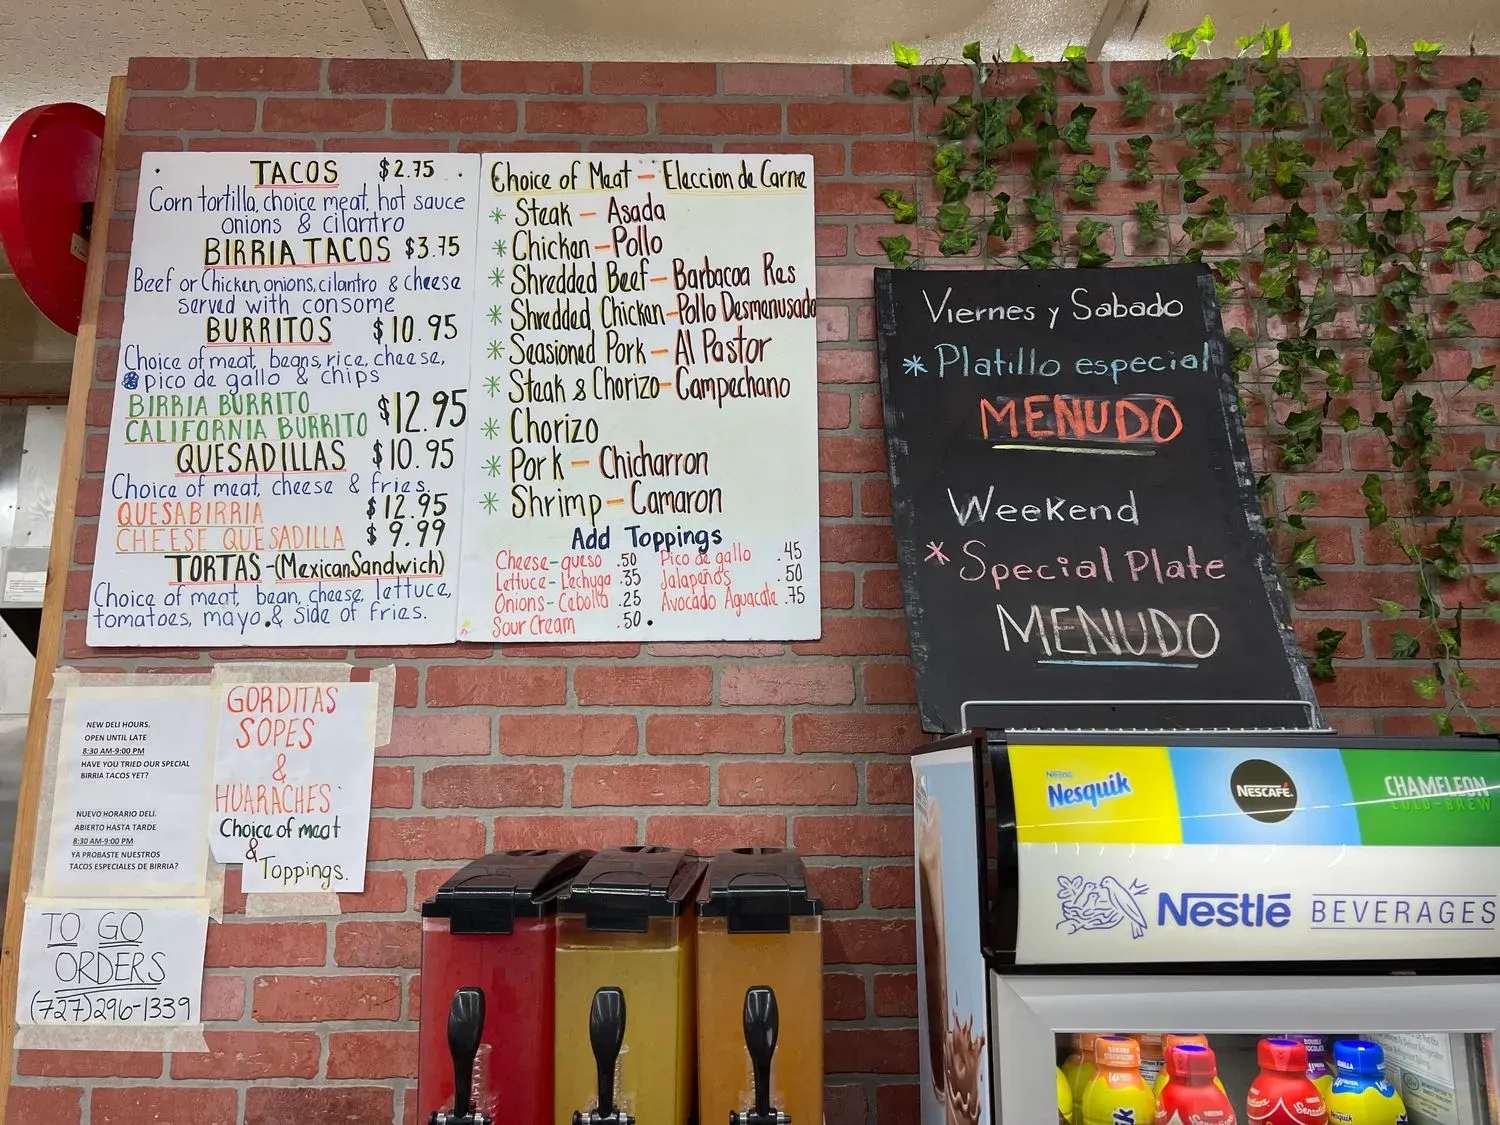 TACOS $2.75
Corn tortilla, choice meat, hot sauce
onions & cilantro
BIRRIA TACOS $3.75
Beef or Chicken, onions, cilantro & cheese
served with consome
BURRITOS $10.95
Choice of meat, beans, rice, cheese,
pico de gallo & chips
BIRRIA BURRITO
CALIFORNIA BURRITO $12.95
QUESADILLAS $10.95
Choice of meat, cheese & fries.
QUESABIRRIA $12.95
CHEESE QUESADILLA $9.99
TORTAS-(Mexican Sandwich)
Choice of meat, bean, cheese, lettuce,
tomatoes, mayo & side of fries.
Choice of Meat - Eleccion de Carne
* Steak - Asada
* Chicken - Pollo
* Shredded Beef - Barbacoa Res
* Shredded Chicken - Pollo Desmenusado
* Seasioned Pork - Al Pastor
* Steak & Chorizo - Campechano
* Chorizo
* Pork - Chicharron
* Shrimp - Camaron
Add Toppings
Cheese-queso .50 Pico de gallo .45
Lettuce-Lechuga .35 Jalapeños .50
Onions-Cebolla .25 Avocado Aguacate .75
Sour Cream .50
Viernes y Sabado
* Platillo especial
MENUDO
Weekend
* Special Plate
MENUDO
NEW DELI HOURS.
OPEN UNTIL LATE
8:30 AM-9:00 PM
HAVE YOU TRIED OUR SPECIAL
BIRRIA TACOS YET?
NUEVO HORARIO DELI.
ABIERTO HASTA TARDE
8:30 AM-9:00 PM
YA PROBASTE NUESTROS
TACOS ESPECIALES DE BIRRIA?
GORDITAS
SOPES
&
HUARACHES
Choice of meat
&
Toppings.
TO GO
ORDERS
(727)296-1339
Nestlé
Nesquik
NESCAFÉ.
CHAMELEON
COLD-BREW
Nestlé BEVERAGES